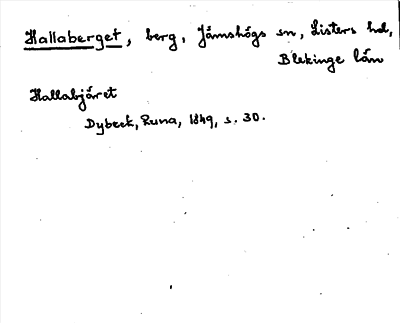 Hallaberget, berg, Jämshögs sn, Listers hd,
Blekinge län
Hallabjäret
Dybeck, Runa, 1849, s. 30.